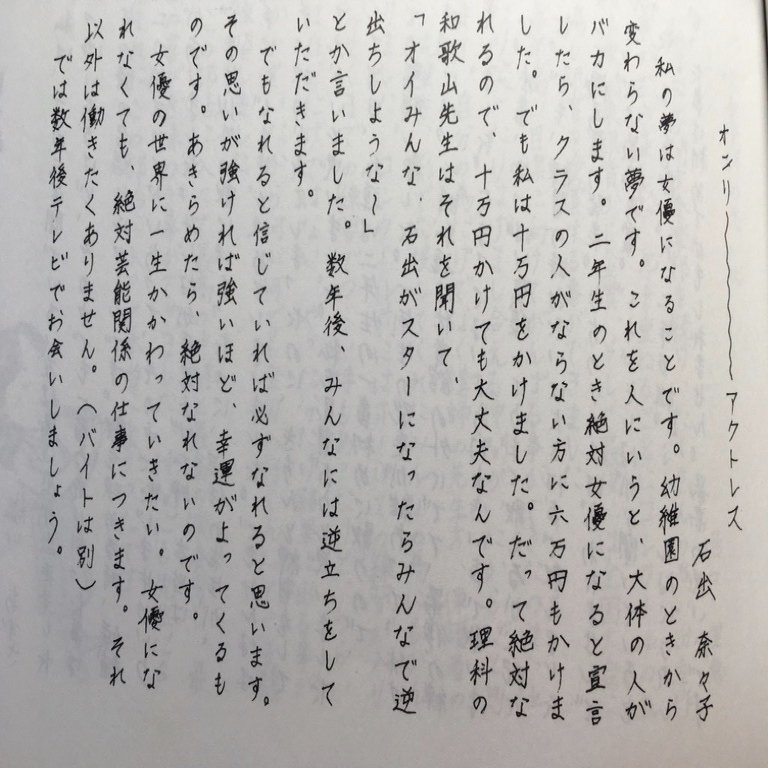 オンリー〜〜〜〜〜アクトレス
石出 奈々子
私の夢は女優になることです。幼稚園のときから
変わらない夢です。これを人にいうと、大体の人が
バカにします。二年生のとき絶対女優になると宣言
したら、クラスの人がならない方に六万円もかけま
した。でも私は十万円をかけました。だって絶対な
れるので、十万円かけても大丈夫なんです。理科の
和歌山先生はそれを聞いて、
「オイみんな、石出がスターになったらみんなで逆
出ちしようなー」
とか言いました。数年後、みんなには逆立ちをして
いただきます。
でもなれると信じていれば必ずなれると思います。
その思いが強ければ強いほど、幸運がよってくるも
のです。あきらめたら、絶対なれないのです。
女優の世界に一生かかわっていきたい。女優にな
れなくても、絶対芸能関係の仕事につきます。それ
以外は働きたくありません。(バイトは別)
では数年後テレビでお会いしましょう。